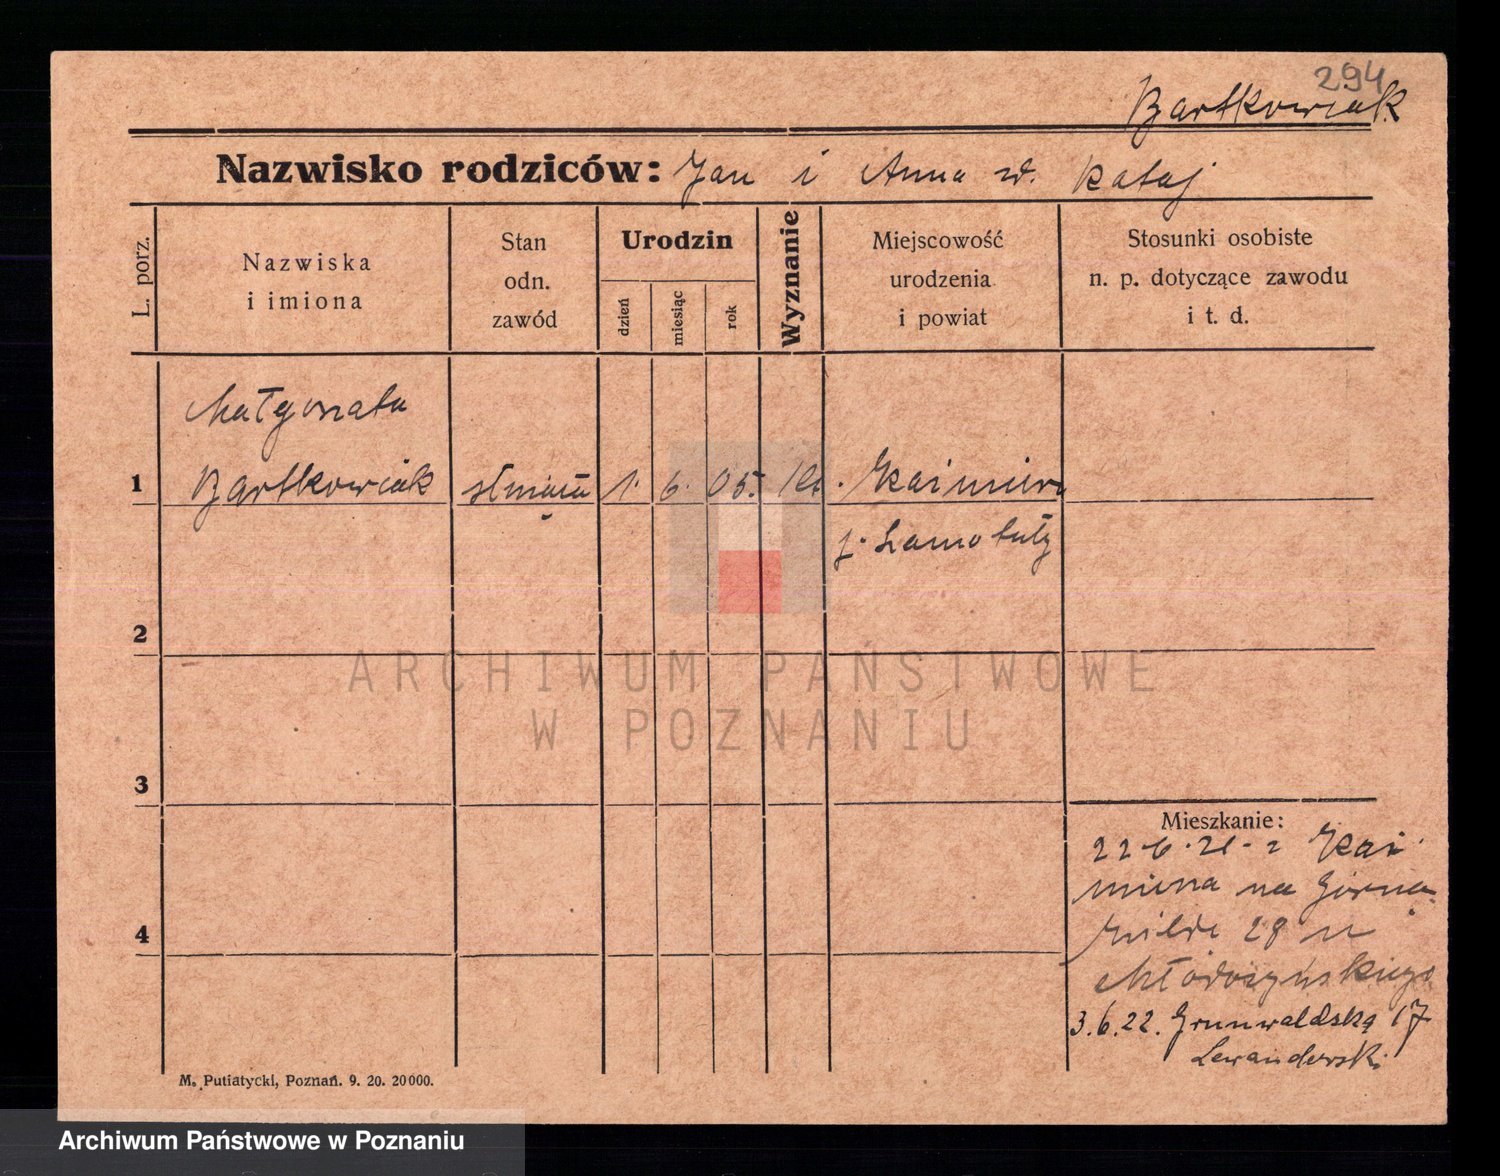 294
Bartkowiak
Nazwisko rodziców: Jan i Anna z d. Kataj
L. porz.
Nazwiska
i imiona
Stan
odn.
zawód
Urodzin
dzień
miesiąc
rok
Wyznanie
Miejscowość
urodzenia
i powiat
Stosunki osobiste
n. p. dotyczące zawodu
i t. d.
Małgorzata
1 Bartkowiak służąca 1. 6. 05. kt. Kaźmierz
p. Szamotuły
2
3
4
Mieszkanie:
22.6.21 z Kaź
mierza na Górna
Wilde 28 u
Młodoszyńskiego
3.6.22. Grunwaldska 17
Lewandowski
M. Putiatycki, Poznań. 9. 20. 20000.
ARCHIWUM PAŃSTWOWE
W POZNANIU
Archiwum Państwowe w Poznaniu